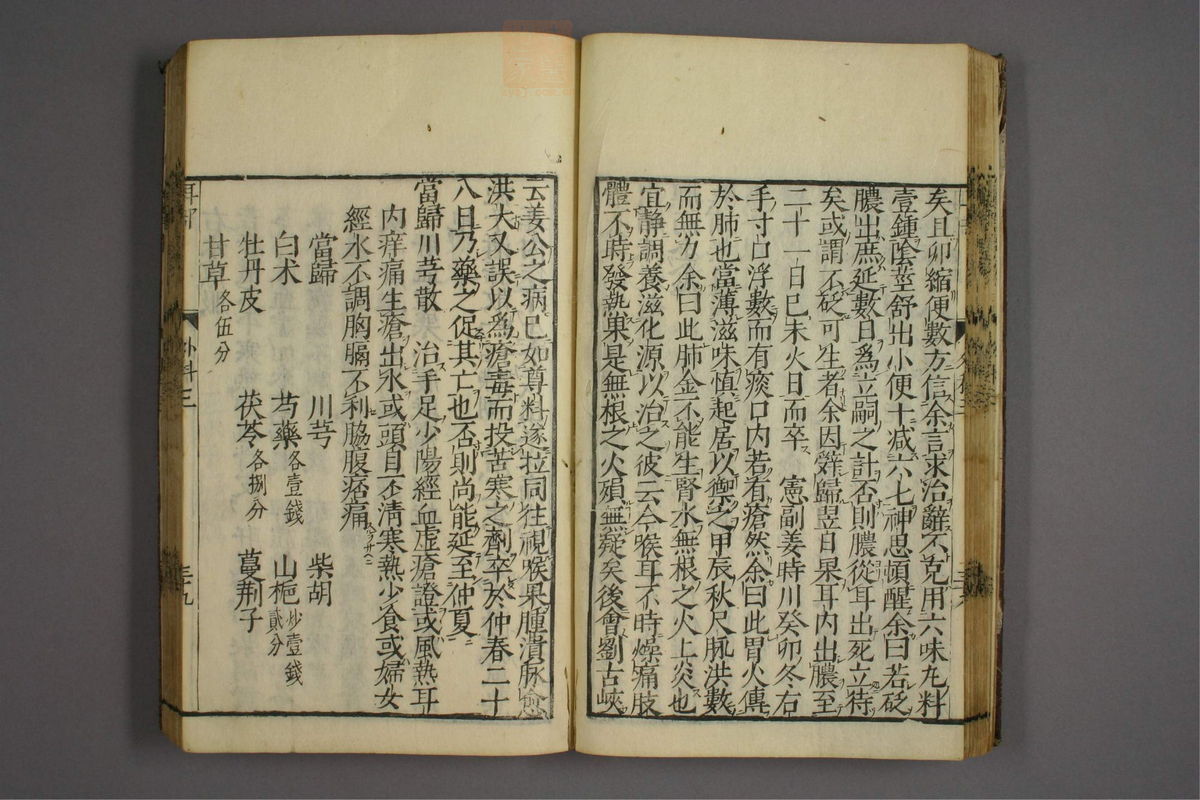 矣且卯縮便數方信余言求治辭不克用六味丸料
壹鍾陰莖舒出小便十减六七神思頓醒余曰若砭
膿出庶延數日爲立嗣之計否則膿從耳出死立待
矣或謂不砭可生者余因辭歸翌日果耳内出膿至
二十一日己未火日而卒　憲副姜時川癸卯冬右
手寸口浮數而有痰口内若有瘡然余曰此胃火傳
於肺也當薄滋味慎起居以禦之甲辰秋尺脉洪數
而無力余曰此肺金不能生腎水無根之火上炎也
宜静調養滋化源以治之彼云今喉耳不時燥痛肢
體不時發熱果是無根之火殞無疑矣後會劉古峽
云姜公之病已如尊料遂拉同往視喉果腫潰脉愈
洪大又誤以爲瘡毒而投苦寒之劑卒於仲春二十
八日乃藥之促其亡也否則尚能延至仲夏
當歸川芎散　治手足少陽經血虛瘡證或風熱耳
内痒痛生瘡出水或頭目不清寒熱少食或婦女
經水不調胸膈不利脇腹㾦痛
當歸　川芎　柴胡
白术　芍藥各壹錢　山梔炒壹錢貳分
牡丹皮　茯苓各捌分　蔓荆子
甘草各伍分
外科三
三十九